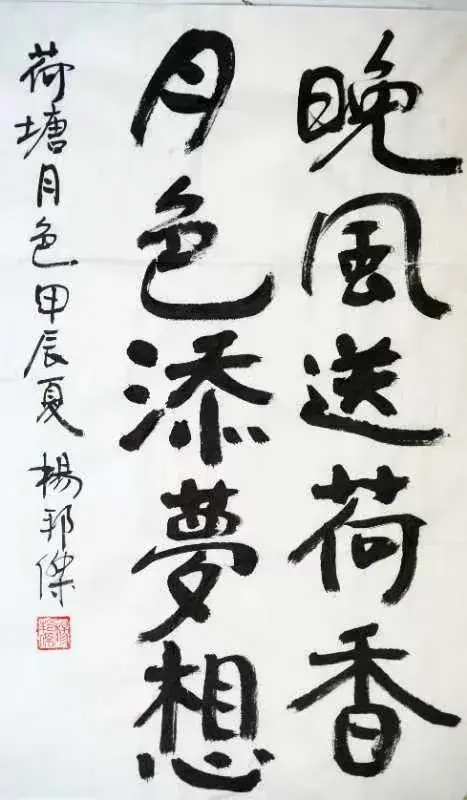 晚風送荷香
月色添夢想
荷塘月色甲辰夏楊邦傑